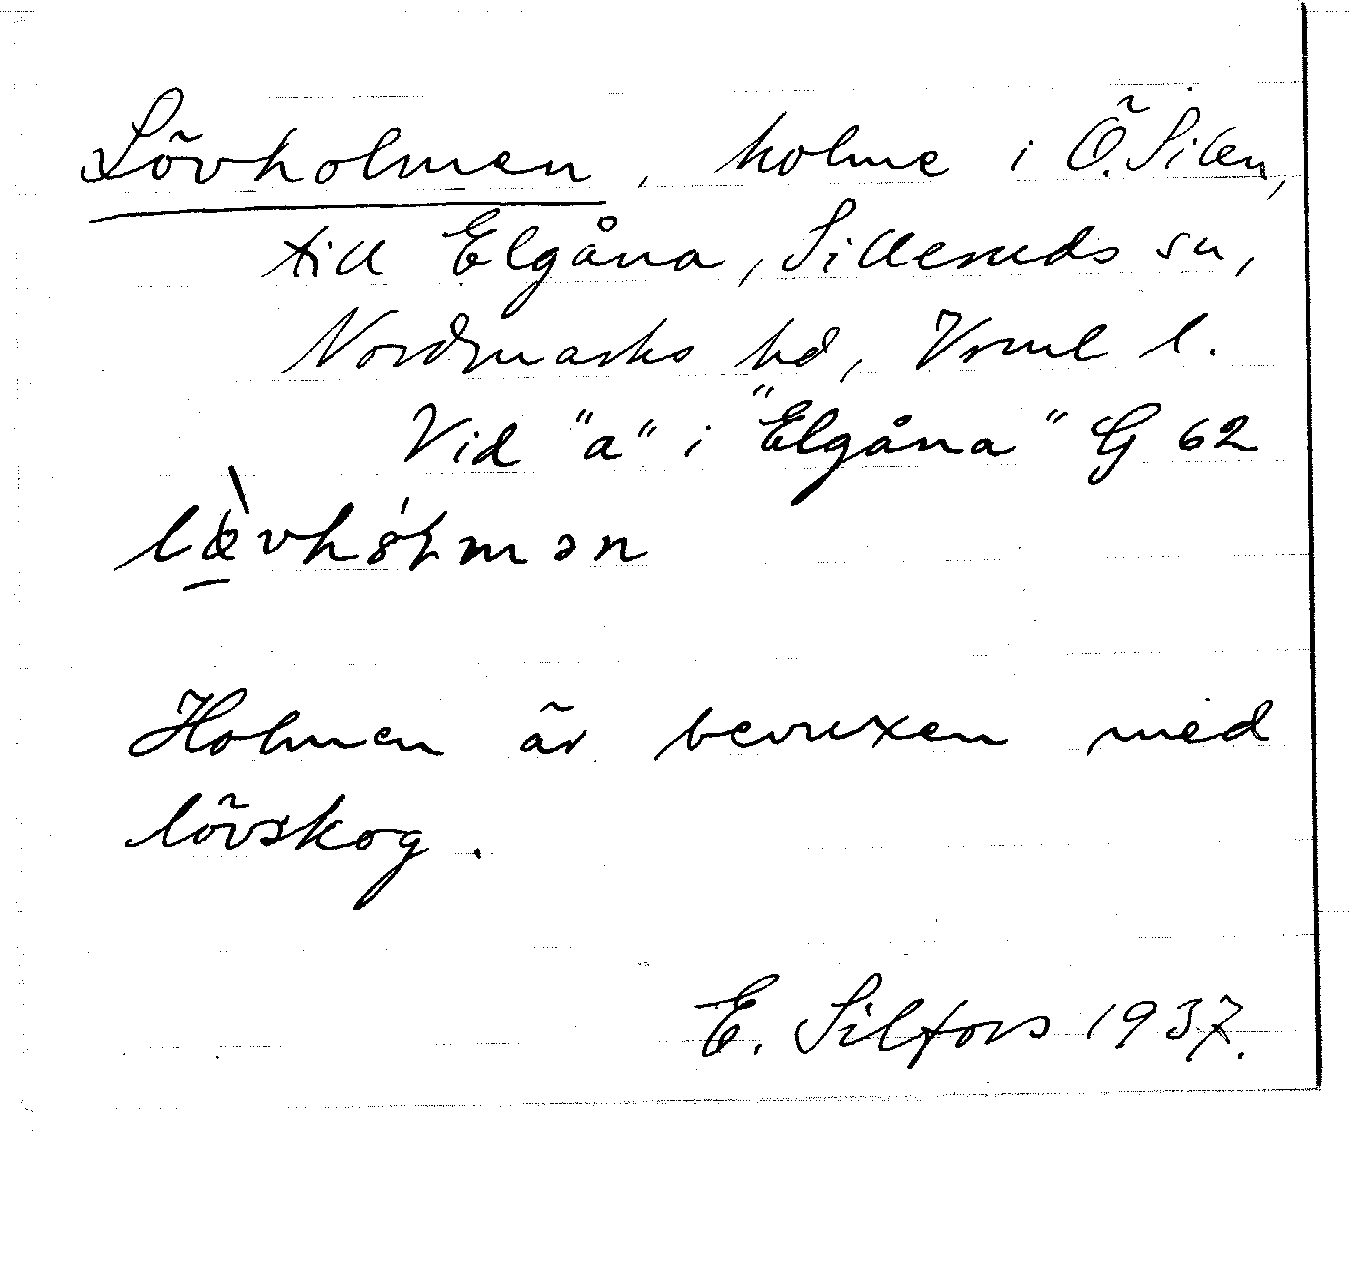 Lövholmen, holme i Ö. Silen,
till Elgåna, Silleruds sn,
Nordmarks hd, Vrml l.
Vid "a" i "Elgåna" G 62
Holmen är bevuxen med
lövskog.
E. Silfors 1937.